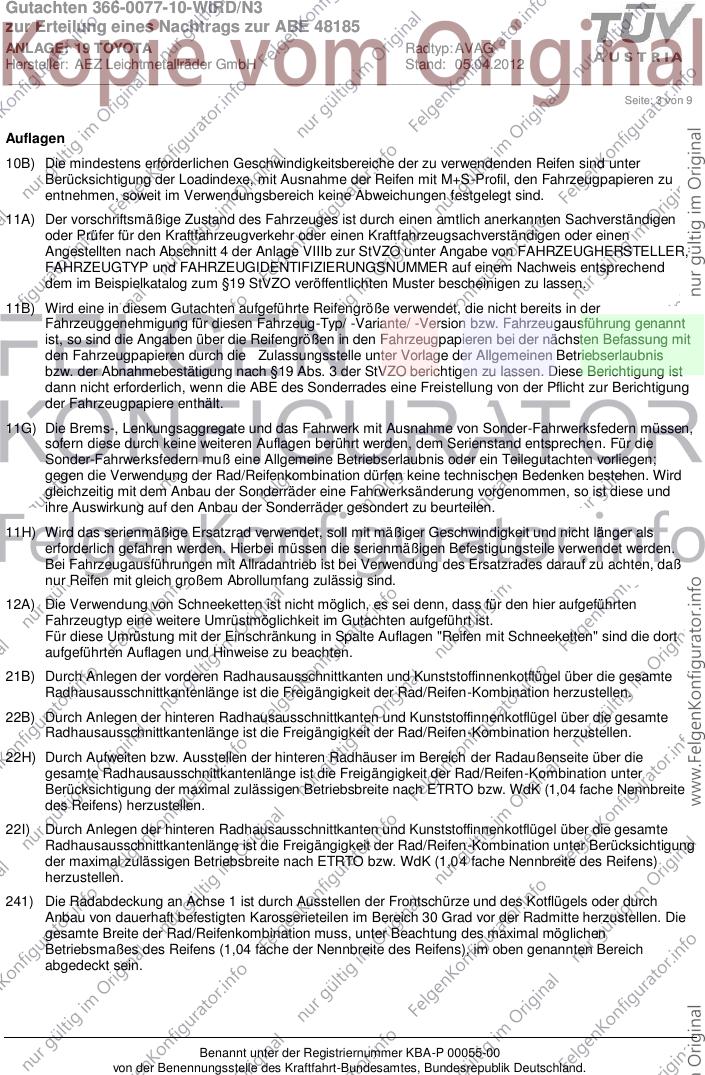 Gutachten 366-0077-10-WIRD/N3
zur Erteilung eines Nachtrags zur ABE 48185
ANLAGE: 19 TOYOTA
Hersteller: AEZ Leichtmetallräder GmbH
Radtyp: AVAG
Stand: 05.04.2012
TÜV
AUSTRIA
Kopie vom Original
Seite: 3 von 9
Auflagen
10B) Die mindestens erforderlichen Geschwindigkeitsbereiche der zu verwendenden Reifen sind unter
Berücksichtigung der Loadindexe, mit Ausnahme der Reifen mit M+S-Profil, den Fahrzeugpapieren zu
entnehmen, soweit im Verwendungsbereich keine Abweichungen festgelegt sind.
11A) Der vorschriftsmäßige Zustand des Fahrzeuges ist durch einen amtlich anerkannten Sachverständigen
oder Prüfer für den Kraftfahrzeugverkehr oder einen Kraftfahrzeugsachverständigen oder einen
Angestellten nach Abschnitt 4 der Anlage VIIIb zur StVZO unter Angabe von FAHRZEUGHERSTELLER,
FAHRZEUGTYP und FAHRZEUGIDENTIFIZIERUNGSNUMMER auf einem Nachweis entsprechend
dem im Beispielkatalog zum §19 StVZO veröffentlichten Muster bescheinigen zu lassen.
11B) Wird eine in diesem Gutachten aufgeführte Reifengröße verwendet, die nicht bereits in der
Fahrzeuggenehmigung für diesen Fahrzeug-Typ/ -Variante/ -Version bzw. Fahrzeugausführung genannt
ist, so sind die Angaben über die Reifengrößen in den Fahrzeugpapieren bei der nächsten Befassung mit
den Fahrzeugpapieren durch die Zulassungsstelle unter Vorlage der Allgemeinen Betriebserlaubnis
bzw. der Abnahmebestätigung nach §19 Abs. 3 der StVZO berichtigen zu lassen. Diese Berichtigung ist
dann nicht erforderlich, wenn die ABE des Sonderrades eine Freistellung von der Pflicht zur Berichtigung
der Fahrzeugpapiere enthält.
11G) Die Brems-, Lenkungsaggregate und das Fahrwerk mit Ausnahme von Sonder-Fahrwerksfedern müssen,
sofern diese durch keine weiteren Auflagen berührt werden, dem Serienstand entsprechen. Für die
Sonder-Fahrwerksfedern muß eine Allgemeine Betriebserlaubnis oder ein Teilegutachten vorliegen;
gegen die Verwendung der Rad/Reifenkombination dürfen keine technischen Bedenken bestehen. Wird
gleichzeitig mit dem Anbau der Sonderräder eine Fahrwerksänderung vorgenommen, so ist diese und
ihre Auswirkung auf den Anbau der Sonderräder gesondert zu beurteilen.
11H) Wird das serienmäßige Ersatzrad verwendet, soll mit mäßiger Geschwindigkeit und nicht länger als
erforderlich gefahren werden. Hierbei müssen die serienmäßigen Befestigungsteile verwendet werden.
Bei Fahrzeugausführungen mit Allradantrieb ist bei Verwendung des Ersatzrades darauf zu achten, daß
nur Reifen mit gleich großem Abrollumfang zulässig sind.
12A) Die Verwendung von Schneeketten ist nicht möglich, es sei denn, dass für den hier aufgeführten
Fahrzeugtyp eine weitere Umrüstmöglichkeit im Gutachten aufgeführt ist.
Für diese Umrüstung mit der Einschränkung in Spalte Auflagen "Reifen mit Schneeketten" sind die dort
aufgeführten Auflagen und Hinweise zu beachten.
21B) Durch Anlegen der vorderen Radhausausschnittkanten und Kunststoffinnenkotflügel über die gesamte
Radhausausschnittkantenlänge ist die Freigängigkeit der Rad/Reifen-Kombination herzustellen.
22B) Durch Anlegen der hinteren Radhausausschnittkanten und Kunststoffinnenkotflügel über die gesamte
Radhausausschnittkantenlänge ist die Freigängigkeit der Rad/Reifen-Kombination herzustellen.
22H) Durch Aufweiten bzw. Ausstellen der hinteren Radhäuser im Bereich der Radaußenseite über die
gesamte Radhausausschnittkantenlänge ist die Freigängigkeit der Rad/Reifen-Kombination unter
Berücksichtigung der maximal zulässigen Betriebsbreite nach ETRTO bzw. WdK (1,04 fache Nennbreite
des Reifens) herzustellen.
22I) Durch Anlegen der hinteren Radhausausschnittkanten und Kunststoffinnenkotflügel über die gesamte
Radhausausschnittkantenlänge ist die Freigängigkeit der Rad/Reifen-Kombination unter Berücksichtigung
der maximal zulässigen Betriebsbreite nach ETRTO bzw. WdK (1,04 fache Nennbreite des Reifens)
herzustellen.
241) Die Radabdeckung an Achse 1 ist durch Ausstellen der Frontschürze und des Kotflügels oder durch
Anbau von dauerhaft befestigten Karosserieteilen im Bereich 30 Grad vor der Radmitte herzustellen. Die
gesamte Breite der Rad/Reifenkombination muss, unter Beachtung des maximal möglichen
Betriebsmaßes des Reifens (1,04 fache der Nennbreite des Reifens), im oben genannten Bereich
abgedeckt sein.
FELGEN
KONFIGURATOR
FelgenKonfigurator.info
nur gültig im Original
www.FelgenKonfigurator.info
Benannt unter der Registriernummer KBA-P 00055-00
von der Benennungsstelle des Kraftfahrt-Bundesamtes, Bundesrepublik Deutschland.